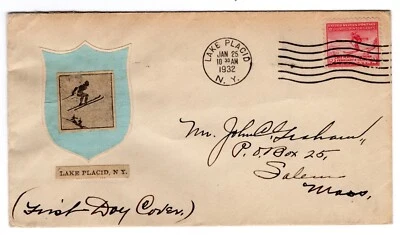 LAKE PLACID
JAN 25
10 30 AM
1932
N.Y.
Mr. John C. Graham,
P.O. Box 25,
Salem
Mass.
LAKE PLACID, N.Y.
(First Day Cover.)